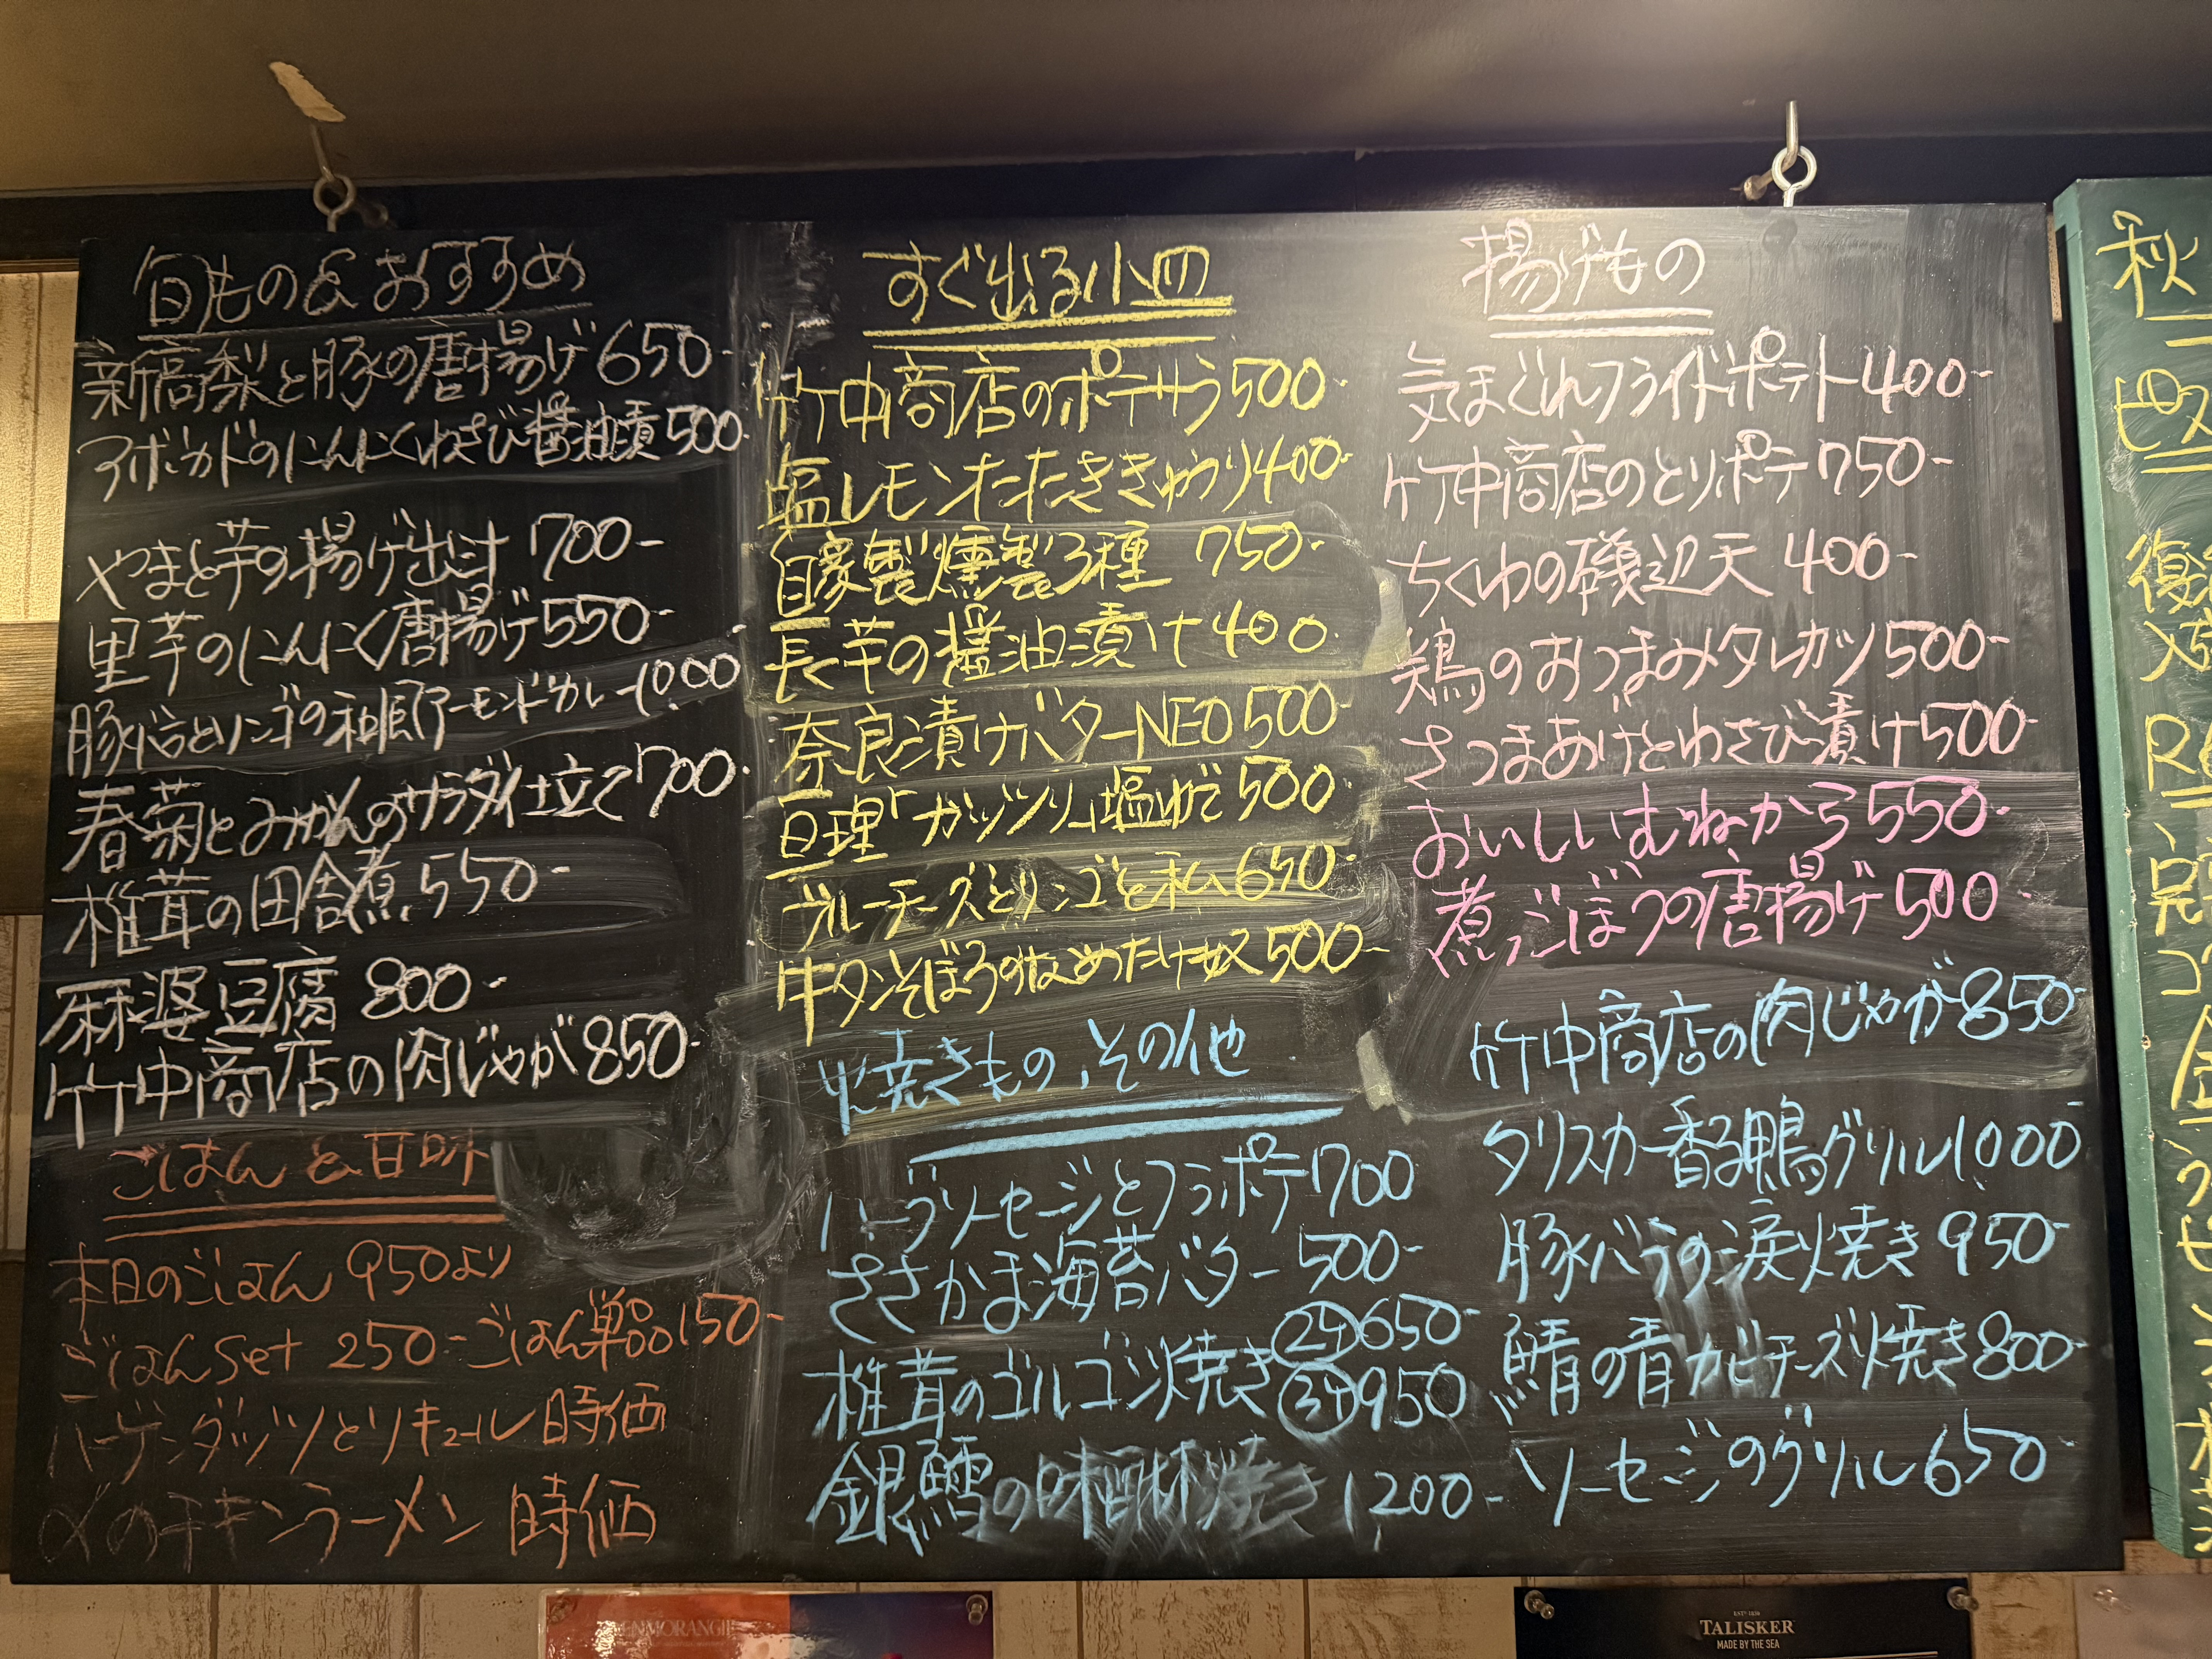 旬もの&おすすめ
新高梨と豚の唐揚げ650-
アボカドのにんにくわさび醤油漬500-
やまと芋の揚げ出汁 700-
里芋のにんにく唐揚げ550-
豚バラとリンゴの和風アーモンドカレー1000
春菊とみかんのサラダ仕立て700-
椎茸の田舎煮 550-
麻婆豆腐 800-
竹中商店の肉じゃが850-
ごはんと甘味
本日のごはん 950より
ごはんSet 250-ごはん単品150-
ハーゲンダッツとリキュール 時価
〆のチキンラーメン 時価
すぐ出る小皿
竹中商店のポテサラ500-
塩レモンたたききゅうり400-
自家製燻製3種 750-
長芋の醤油漬け400-
奈良漬けバターNEO500-
亘理「ガッツリ」塩ゆで500-
ブルーチーズとリンゴと私650-
牛タンそぼろのなめたけ奴500-
焼きもの、その他
ハーブソーセージとフラポテ700-
ささかま海苔バター 500-
椎茸のゴルゴン焼き
2ヶ650-
3ヶ950
銀鱈の味醂焼き 1200-
揚げもの
気まぐれフライドポテト400-
竹中商店のとりポテ750-
ちくわの磯辺天 400-
鶏のおつまみタレカツ500-
さつまあげとわさび漬け500-
おいしいむねから550-
煮ごぼうの唐揚げ500-
竹中商店の肉じゃが850-
タリスカー香る鴨グリル1000-
豚バラの涙焼き 950-
鯖の青カビチーズ焼き800-
ソーセージのグリル650-
秋
ピス
GLENMORANGIE
ESTD 1830
TALISKER
MADE BY THE SEA